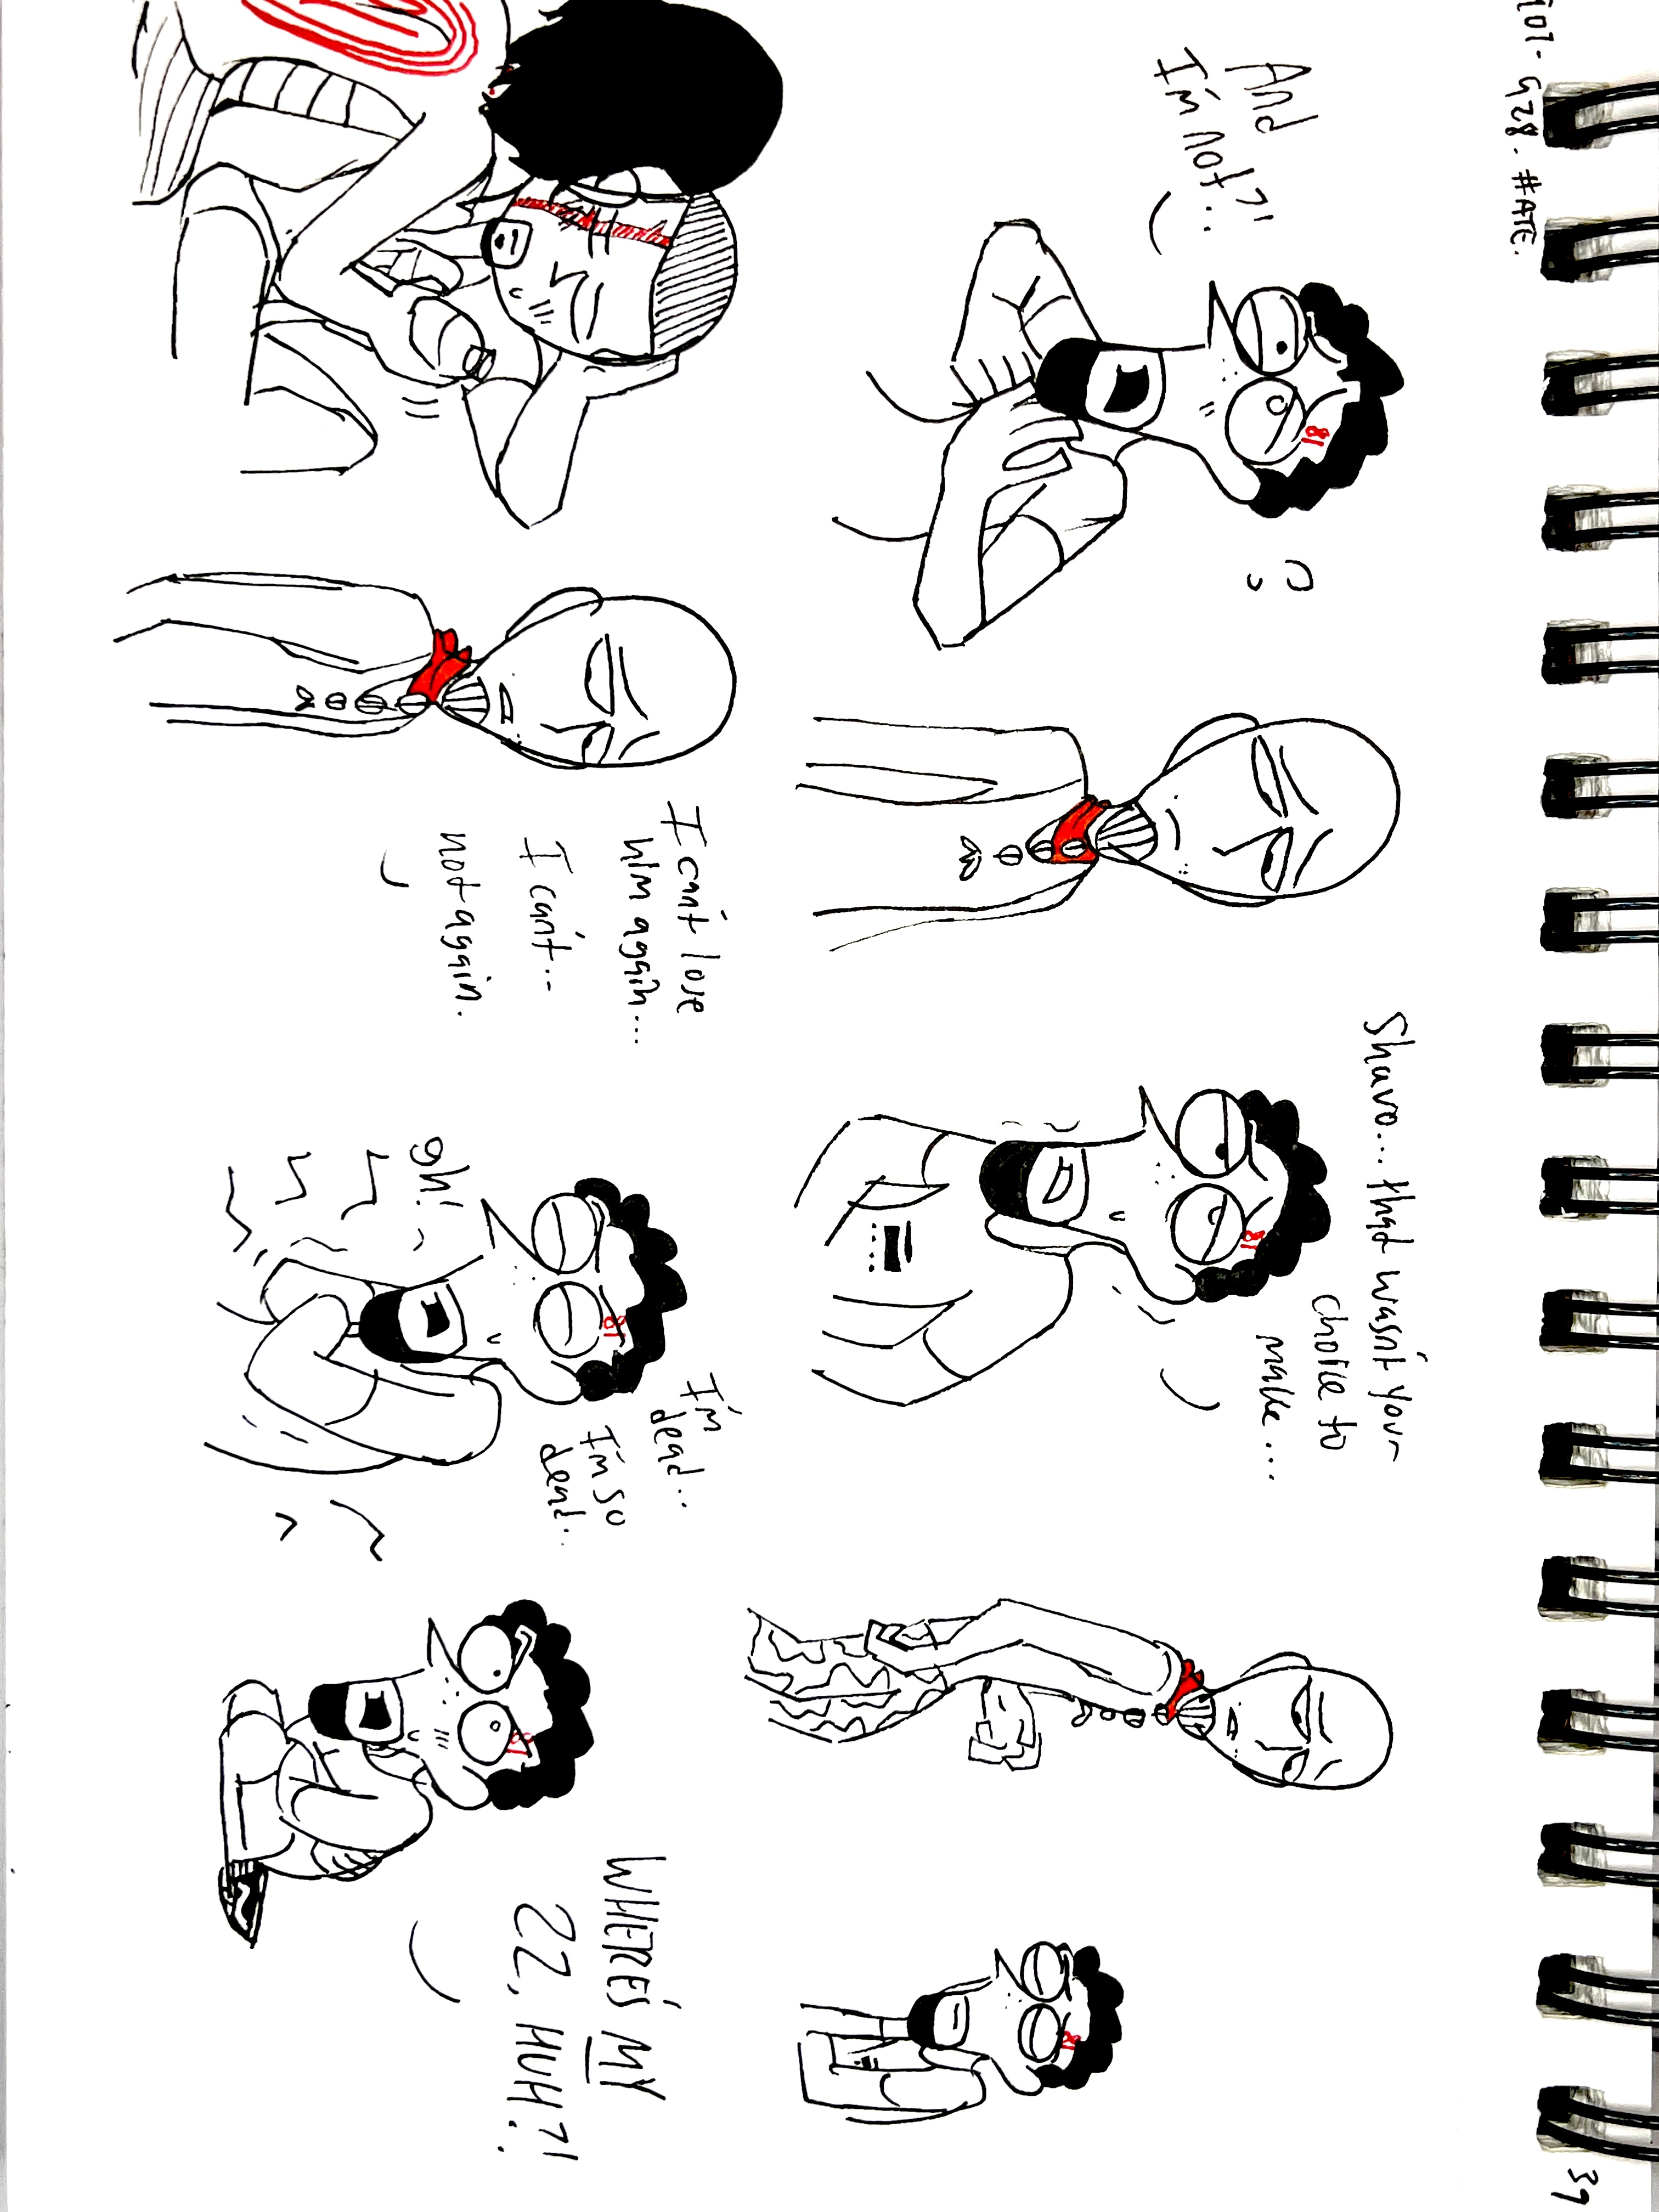 39
928. #ATE.
And
I'm not?!..
81
Shavo... that wasn't your
choice to
make...
81
81
I can't lose
him again...
I can't...
not again.
I'm
dead..
I'm so
dead..
81
gh!
WHERE'S MY
22, HUH?!
81